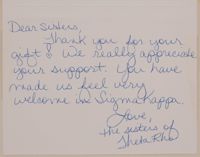 Dear Sisters,
Thank you for your
gift! We really appreciate
your support. You have
made us feel very
welcome in Sigma Kappa.
Love,
the sisters of
Theta Rho